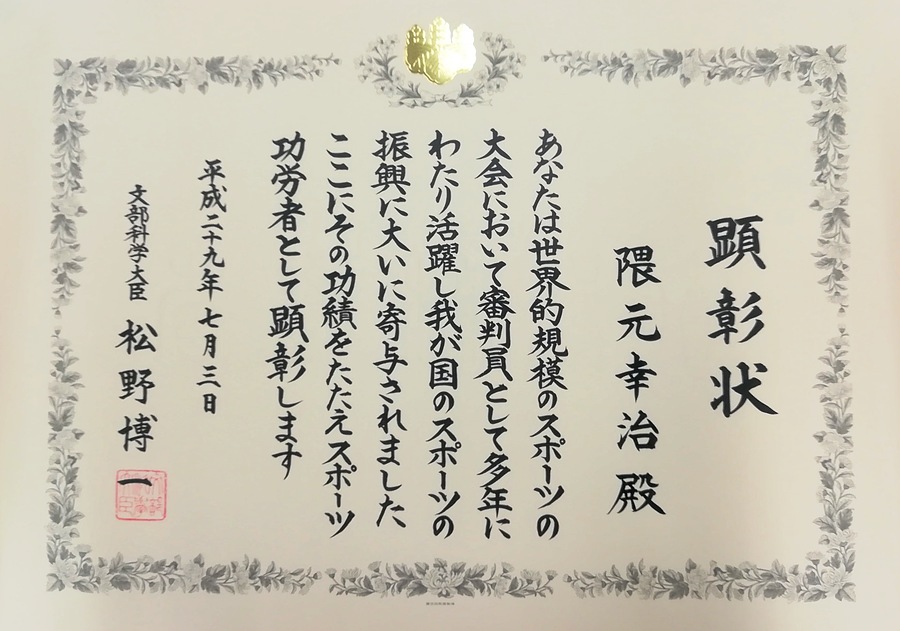 顕彰状
隈元幸治殿
あなたは世界的規模のスポーツの
大会において審判員として多年に
わたり活躍し我が国のスポーツの
振興に大いに寄与されました
ここにその功績をたたえスポーツ
功労者として顕彰します
平成二十九年七月三日
文部科学大臣 松野博一